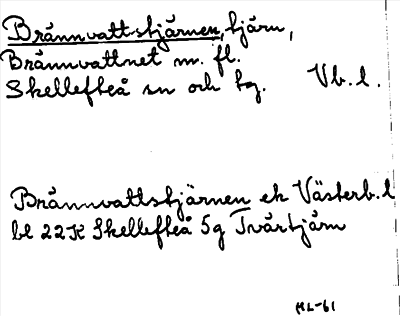 Brånnvattstjärnen, tjärn,
Brånnvattnet m. fl.
Skellefteå sn och tg. Vb. l.
Brånnvattstjärnen ek Västerb. l
bl 22 K Skellefteå 5g Tvärtjärn
ML-61